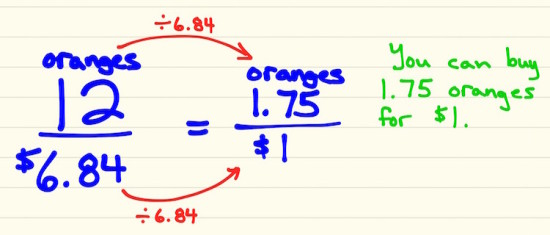 ÷6.84
oranges
12
$6.84
=
oranges
1.75
$1
÷6.84
You can buy
1.75 oranges
for $1.